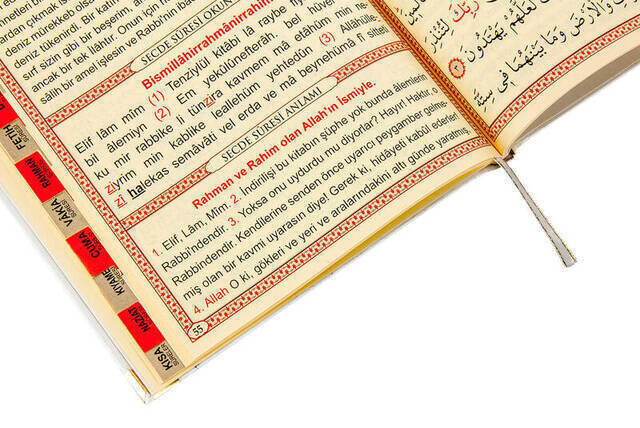 dardan çıkmak iste
deniz mürekkep olsa
deniz tükenirdi. Bir katın
sırf sizin gibi bir beşerim, an
ancak bir tek ilâhtır. Onun için h
sâlih bir amel işlesin ve Rabbi'nin ib
SECDE SÛRESİ OKUN
Bismillâhirrahmânirrahîm
Elif lâm mîm (1) Tenzîylül kitâbi lâ raybe
bil âlemiyn (2) Em yekûlûnefterâh. bel hüvel
ku mir rabbike li tünzira kavmem mâ etâhüm min ne
ziyrim min kablike leallehüm yehtedûn (3) Allâhülle-
zî halekas semâvâti vel erda ve mâ beynehümâ fî sitteti
SECDE SÛRESİ ANLAMI
Rahman ve Rahim olan Allah'ın İsmiyle.
1. Elif, Lâm, Mim. 2. İndirilişi bu kitabın şüphe yok bunda âlemlerin
Rabbi'ndendir. 3. Yoksa onu uydurdu mu diyorlar? Hayır! Haktır o
Rabbindendir. Kendilerine senden önce uyarıcı peygamber gelme-
miş olan bir kavmi uyarasın diye! Gerek ki, hidâyeti kabûl ederler!
4. Allah O ki, gökleri ve yeri ve aralarındakini altı günde yaratmış,
55
FETİH
RAHMAN
VAKİA
CUMA
KIYAME
NAZİAT
KISA
رَبِّكَ لِتُنْذِرَ
لَعَلَّهُمْ يَهْتَدُونَ
وَالْاَرْضَ وَمَا بَيْنَهُمَا فِي سِتَّةِ